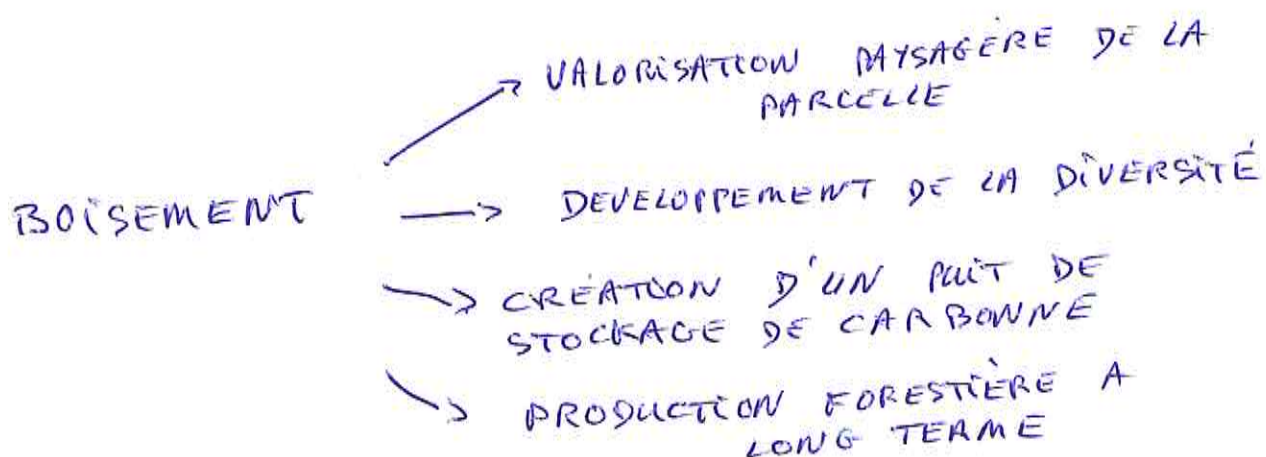 VALORISATION PAYSAGÈRE DE LA
PARCELLE
BOISEMENT
DEVELOPPEMENT DE LA DIVERSITÉ
CRÉATION D'UN PUIT DE
STOCKAGE DE CARBONNE
PRODUCTION FORESTIÈRE A
LONG TERME